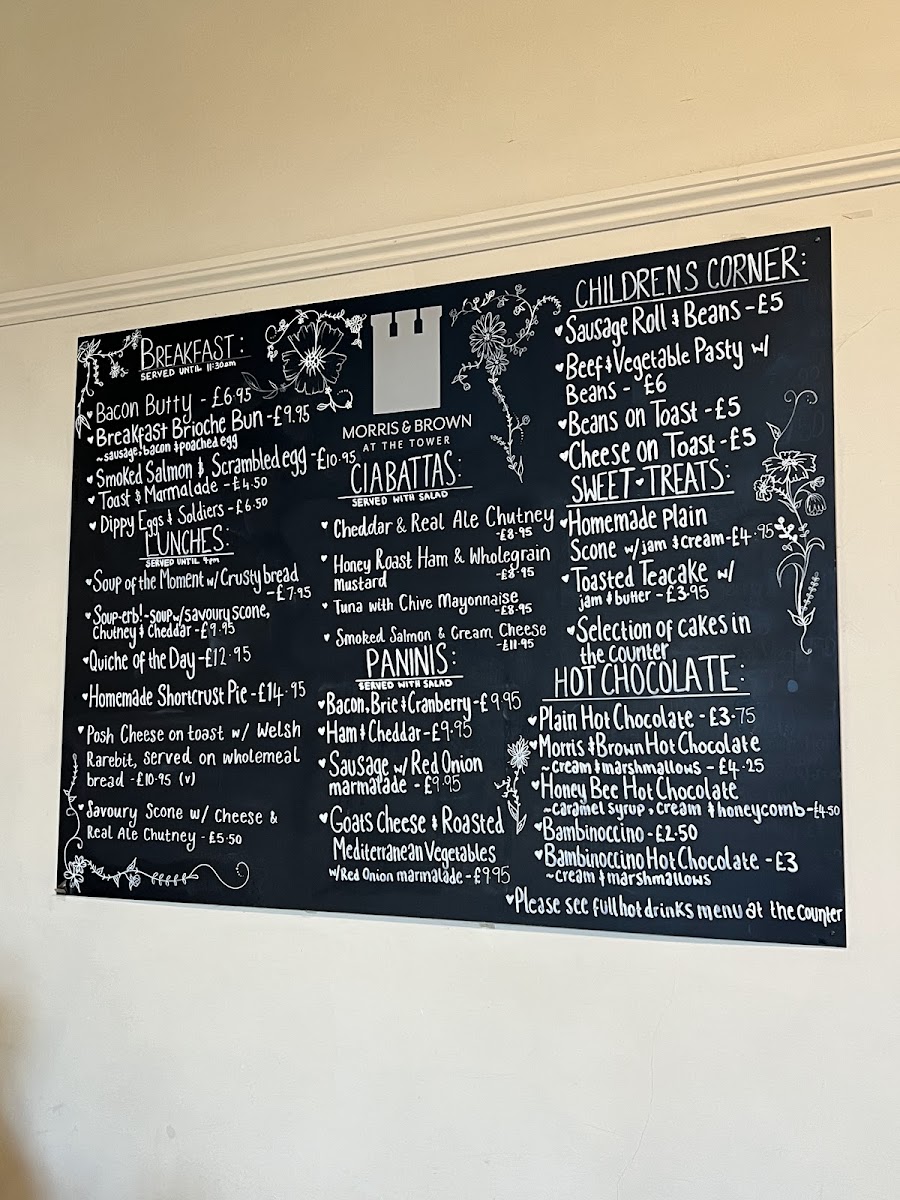 BREAKFAST:
SERVED UNTIL 11:30am
Bacon Butty - £6.95
Breakfast Brioche Bun - £9.95
~ sausage, bacon & poached egg
Smoked Salmon & Scrambled egg - £10.95
Toast & Marmalade - £4.50
Dippy Eggs & Soldiers - £6.50
LUNCHES:
SERVED UNTIL 4pm
Soup of the Moment w/ Crusty bread
- £7.95
Soup-erb! - soup w/ savoury scone,
Chutney & Cheddar - £9.95
Quiche of the Day - £12.95
Homemade Shortcrust Pie - £14.95
Posh Cheese on toast w/ Welsh
Rarebit, served on wholemeal
bread - £10.95 (v)
Savoury Scone w/ Cheese &
Real Ale Chutney - £5.50
MORRIS & BROWN
AT THE TOWER
CIABATTAS:
SERVED WITH SALAD
Cheddar & Real Ale Chutney
- £8.95
Honey Roast Ham & Wholegrain
Mustard - £8.95
Tuna with Chive Mayonnaise
- £8.95
Smoked Salmon & Cream Cheese
- £11.95
PANINIS:
SERVED WITH SALAD
Bacon, Brie & Cranberry - £9.95
Ham & Cheddar - £9.95
Sausage w/ Red Onion
marmalade - £9.95
Goats Cheese & Roasted
Mediterranean Vegetables
w/ Red Onion marmalade - £9.95
CHILDRENS CORNER:
Sausage Roll & Beans - £5
Beef & Vegetable Pasty w/
Beans - £6
Beans on Toast - £5
Cheese on Toast - £5
SWEET TREATS:
Homemade Plain
Scone w/ jam & cream - £4.95
Toasted Teacake w/
jam & butter - £3.95
Selection of cakes in
the counter
HOT CHOCOLATE:
Plain Hot Chocolate - £3.75
Morris & Brown Hot Chocolate
~ cream & marshmallows - £4.25
Honey Bee Hot Chocolate
~ caramel syrup, cream & honeycomb - £4.50
Bambinoccino - £2.50
Bambinoccino Hot Chocolate - £3
~ cream & marshmallows
Please see full hot drinks menu at the counter